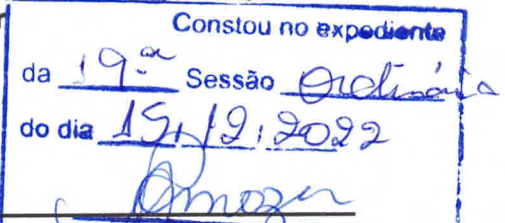 Constou no expediente
da 19ª Sessão Ordinária
do dia 15/12/2022